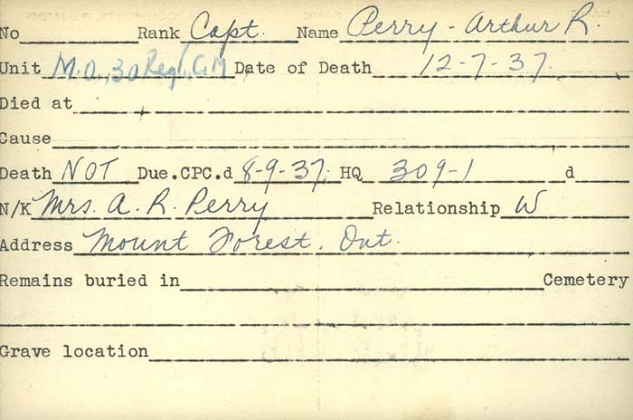 No Rank Capt. Name Perry - Arthur R.
Unit M.O., 30 Reg', C.M Date of Death 12-7-37.
Died at
Cause
Death NOT Due.CPC.d 8-9-37. HQ 309-1 d
N/K Mrs. A. R. Perry Relationship W
Address Mount Forest. Ont.
Remains buried in Cemetery
Grave location